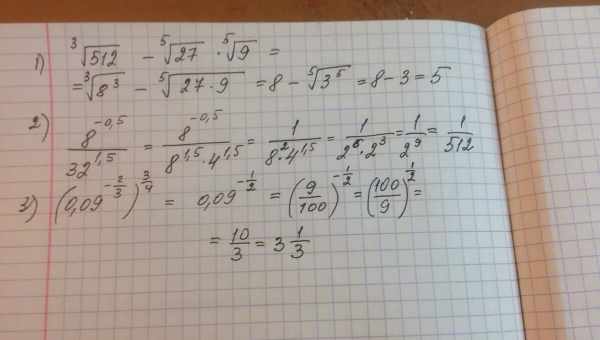 1) ∛512 − ⁵√27 · ⁵√9 =
= ∛8³ − ⁵√27·9 = 8 − ⁵√3⁵ = 8 − 3 = 5
2) 8^-0,5 / 32^1,5 = 8^-0,5 / 8^1,5 · 4^1,5 = 1 / 8² · 4^1,5 = 1 / 2⁶ · 2³ = 1 / 2⁹ = 1 / 512
3) (0,09^-2/3)^3/4 = 0,09^-1/2 = (9/100)^-1/2 = (100/9)^1/2 =
= 10/3 = 3 1/3